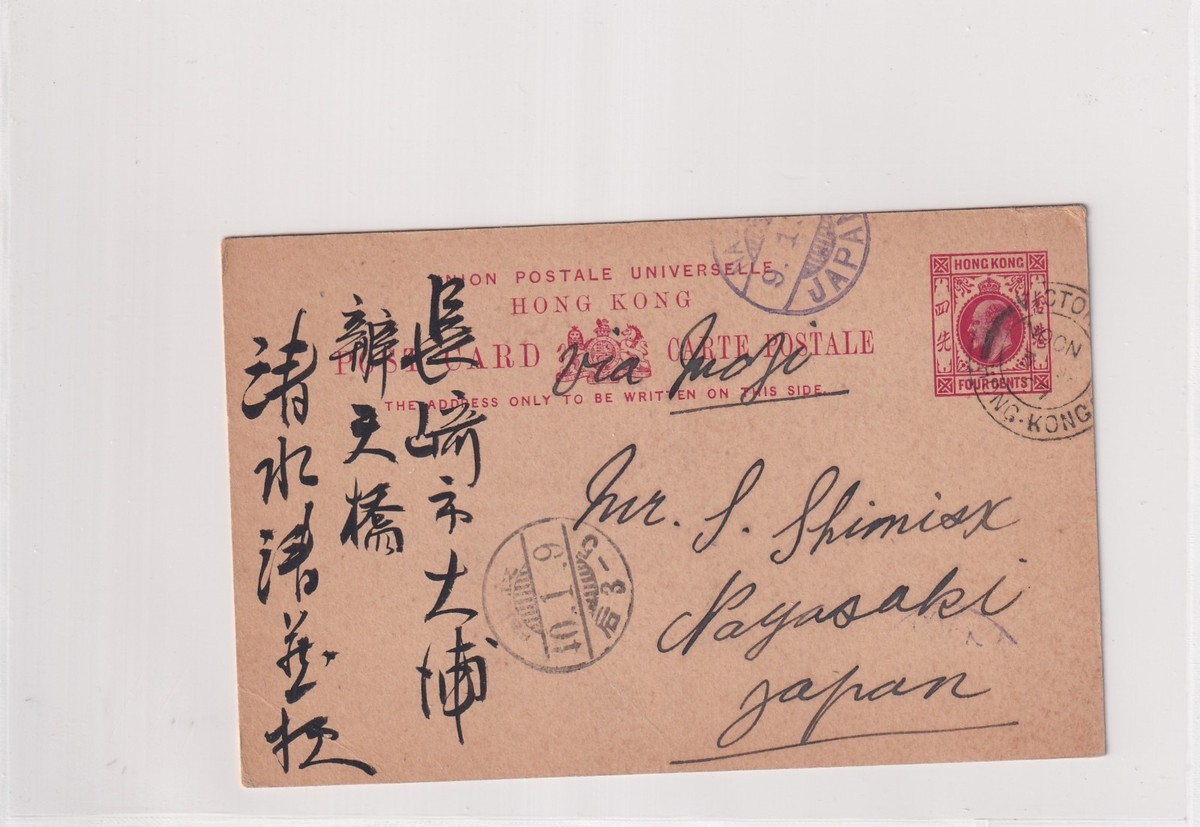 UNION POSTALE UNIVERSELLE
HONG KONG
POST CARD CARTE POSTALE
THE ADDRESS ONLY TO BE WRITTEN ON THIS SIDE.
HONG KONG
四先
FOUR CENTS
HONG-KONG
9.1.
JAPAN
via Moji
Mr. S. Shimisx
Nagasaki
Japan
長崎市大浦
辧天橋
清水清
40.1.9
后3-5